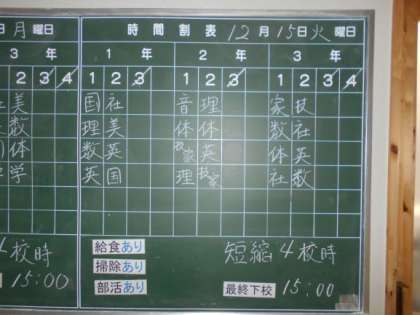 月曜日
時間割表 12月15日火曜日
3年 1年 2年 3年
1 2 3 4 1 2 3 1 2 3 1 2 3
美 国社 音理 家技
数 理美 体体 数社
体 数英 技家 英 体英
学 英国 理 技家 社数
4校時 給食あり 短縮4校時
掃除あり
15:00 部活あり 最終下校 15:00